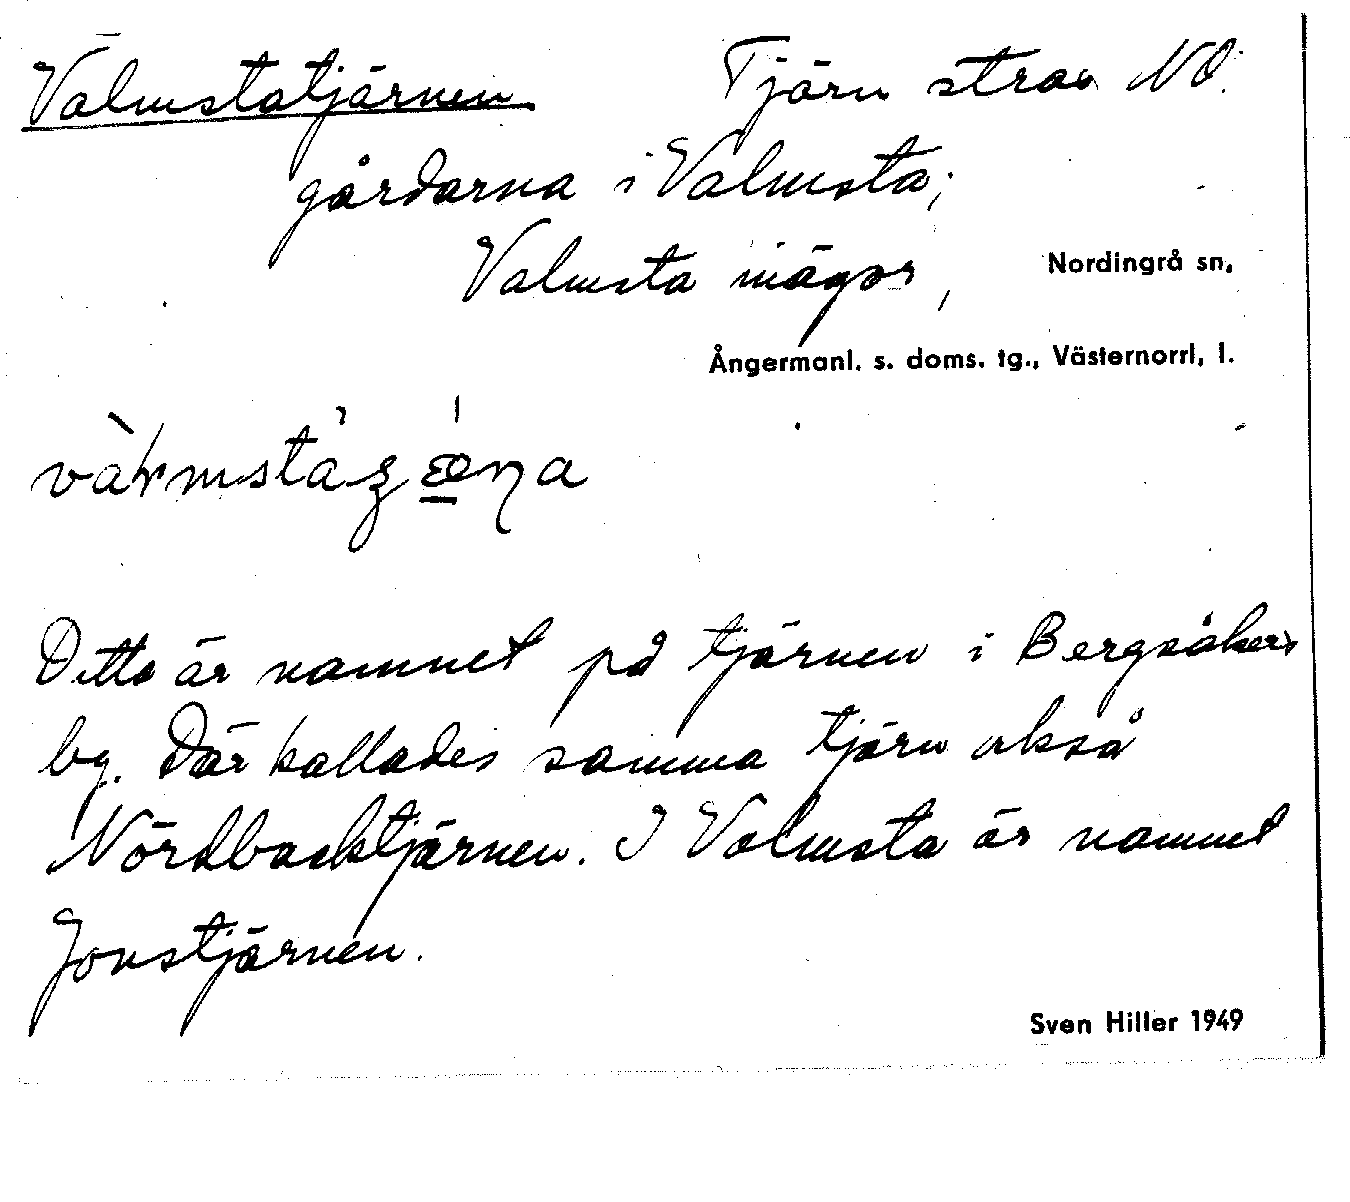 Valmstatjärnen Tjärn strax NO.
gårdarna i Valmsta;
Valmsta mägor, Nordingrå sn,
Ångermanl. s. doms. tg., Västernorrl, l.
Detta är namnet på tjärnen i Bergsåkers
by. Där kallades samma tjärn också
Nördbacktjärnen. I Valmsta är namnet
Jonstjärnen.
Sven Hiller 1949